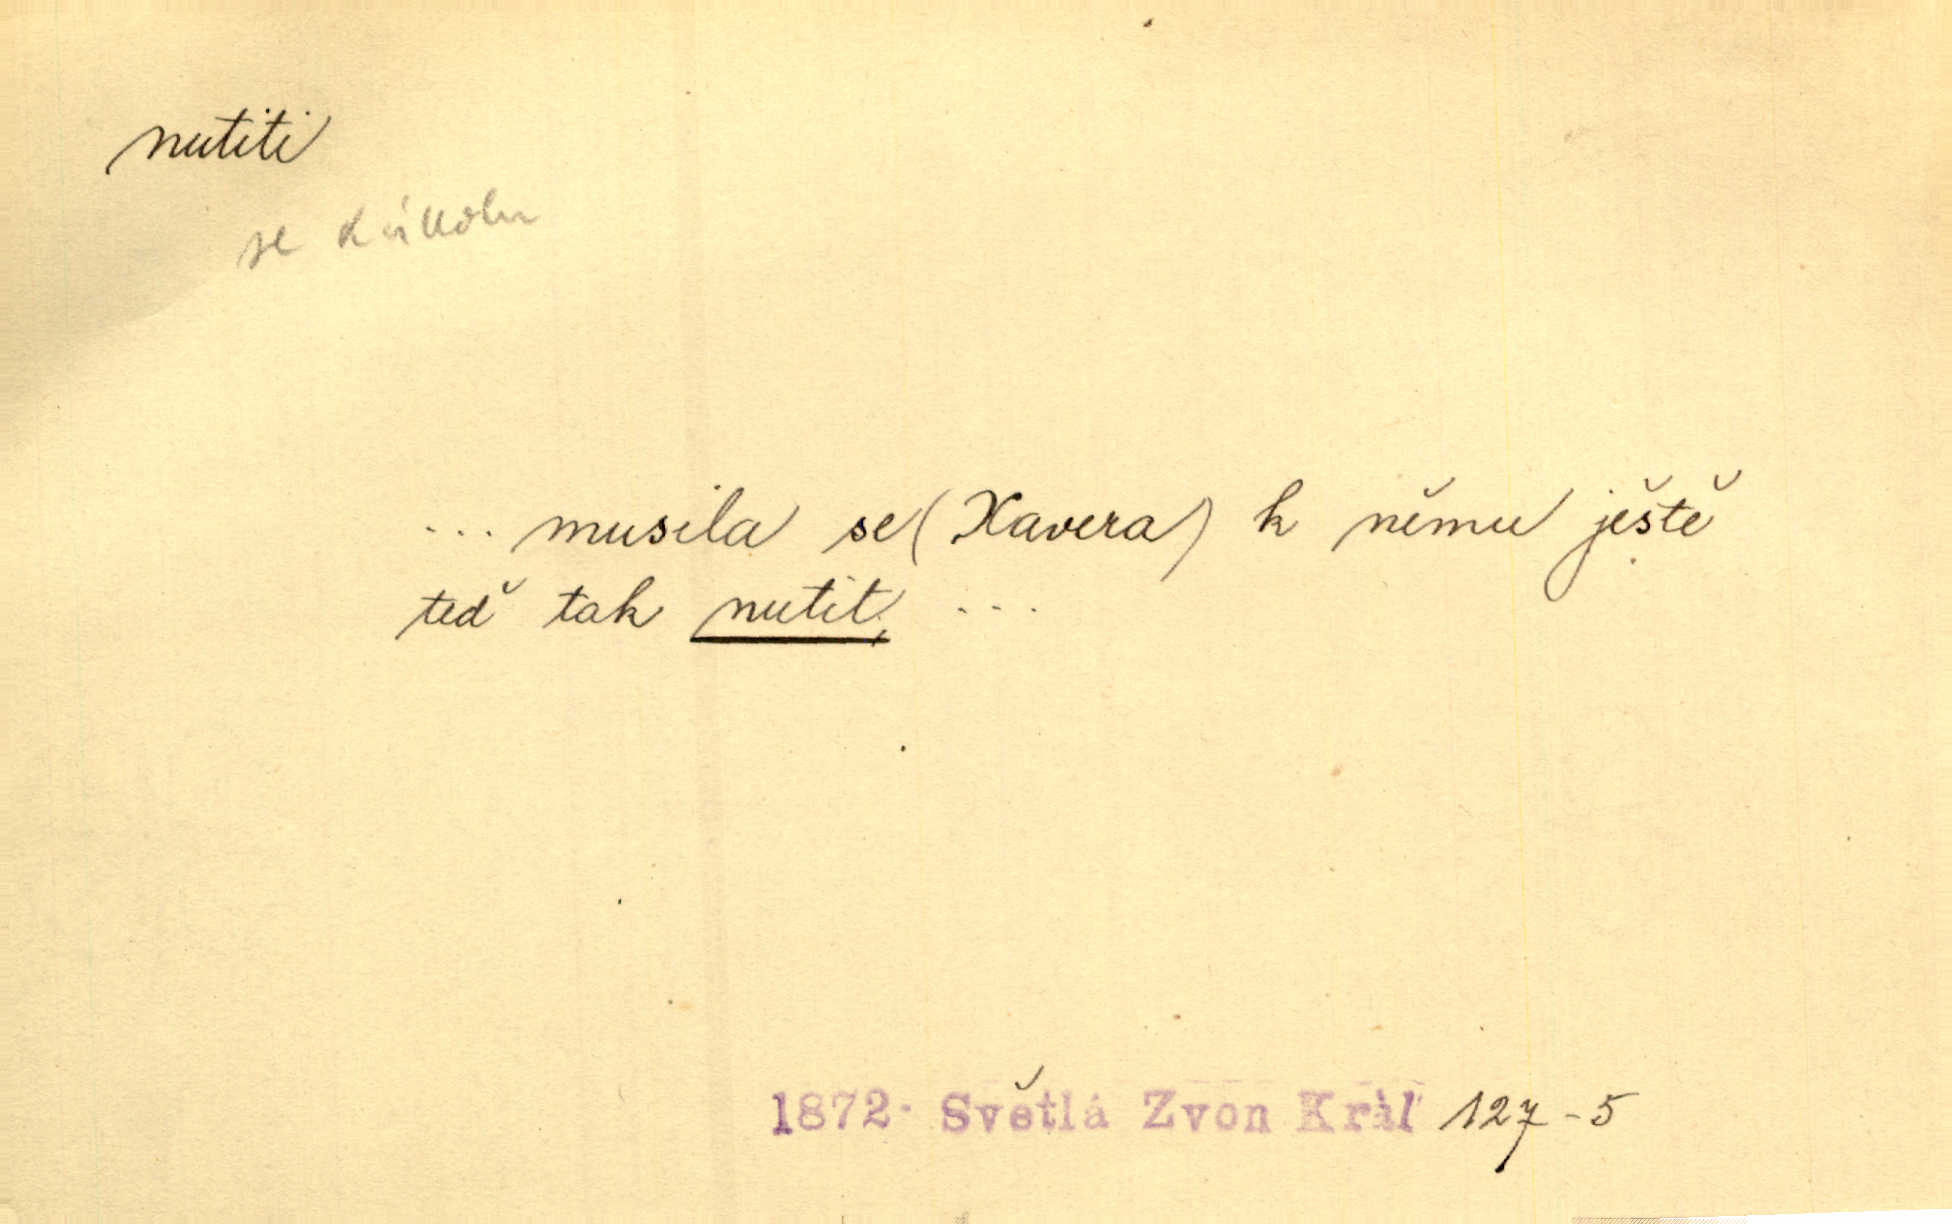 nutiti
se k
... musila se (Xavera) k němu ještě
teď tak nutit, ...
1872 Světlá Zvon Král 127-5